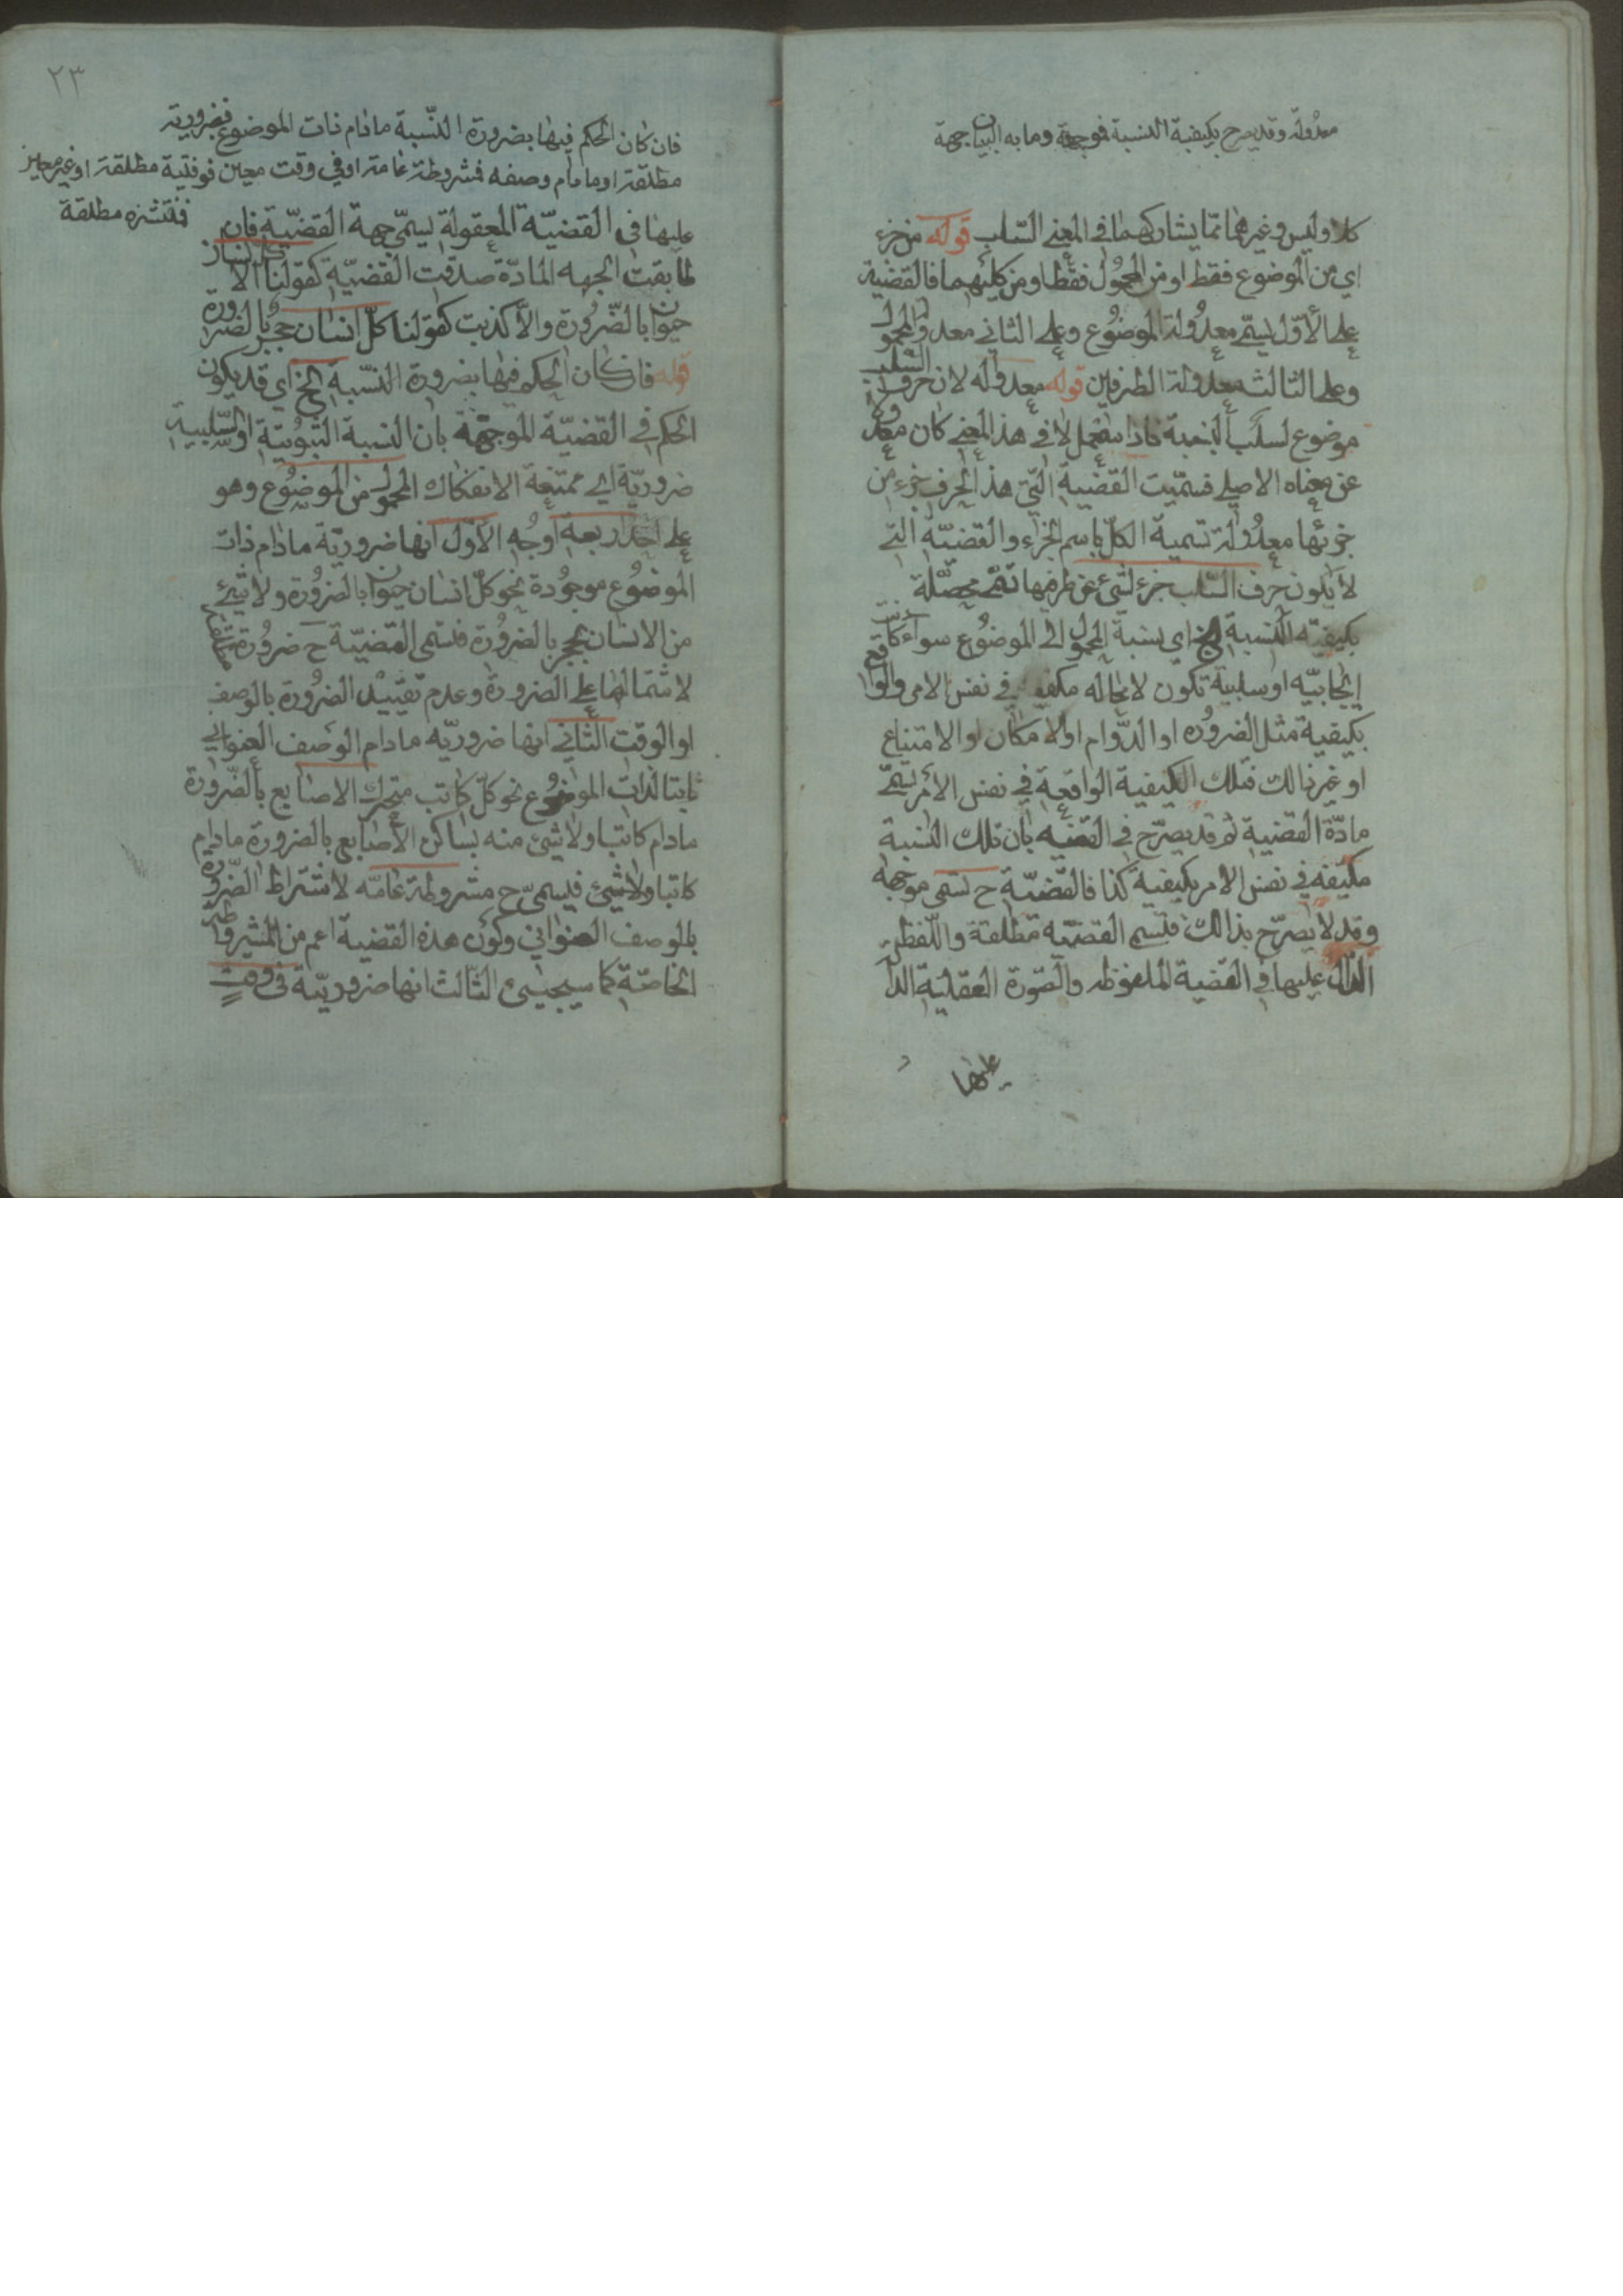 معدولة وقد يصرح بكيفية النسبة فموجهة وما به البيان جهة
كلا وليس وغيرهما مما يشاركهما في المعنى السلب قوله من جزء
اي من الموضوع فقط او من المحمول فقط او من كليهما فالقضية
على الأول تسمى معدولة الموضوع وعلى الثاني معدولة المحمول
وعلى الثالث معدولة الطرفين قوله معدوله لان حرف السلب
موضوع لسلب النسبة فاذا استعمل لا في هذا المعنى كان معدولا
عن معناه الاصلي فسميت القضية التي هذ الحرف جزء من
جزئها معدولة تسمية الكل باسم الجزء والقضيّة التي
لا يكون حرف السلب جزء لشئ من طرفيها تسمى محصّلة
بكيفيّة النسبة الخ اي نسبة المحمول الى الموضوع سواء كانت
ايجابيّه او سلبية تكون لا محاله مكيفة في نفس الامر والواقع
بكيفية مثل الضروره او الدّوام او الامكان او الامتناع
او غير ذالك فتلك الكيفية الواقعة في نفس الأمر تسمّى
مادّة القضية ثم قد يصرّح في القضيه بأن تلك النسبة
مكيّفه في نفس الامر بكيفية كذا فالقضيّة ح تسمى موجهة
وقد لا يصرّح بذالك فتسمى القضيّه مطلقة واللّفظ
الدّال عليها في القضية الملفوظه والصّورة العقليّة الدالّ
عليها
٢٣
فان كان الحكم فيها بضرورة النّسبة مادام ذات الموضوع فضرورية
مطلقة او مادام وصفه فمشروطة عامة او في وقت معين فوقتية مطلقة او غير معين
فمنتشره مطلقة
عليها في القضيّة المعقولة يسمّى جهة القضيّة فان
طابقت الجهه المادّة صدقت القضيّة كقولنا كل انسان
حيوان بالضّرورة والاّ كذبت كقولنا كلّ انسان حجر بالضرورة
قوله فان كان الحكم فيها بضرورة النّسبة الخ اي قد يكون
الحكم في القضيّة الموجهّة بان النسبة الثبوتية او السّلبية
ضروريّة اي ممتنعة الانفكاك المحمول من الموضوع وهو
على احد اربعة اوجه الاوّل انها ضروريّة مادام ذات
الموضوع موجودة نحو كلّ انسان حيوان بالضرورة ولا شئ
من الانسان بحجر بالضرورة فتسمى القضيّة ح ضرورة مطلقة
لاشتمالها على الضرورة وعدم تقييد الضرورة بالوصف
او الوقت الثاني انها ضروريّه مادام الوصف العنواني
ثابتا لذات الموضوع نحو كلّ كاتب متحرك الاصابع بالضّرورة
مادام كاتبا ولا شئ منه بساكن الأصابع بالضرورة مادام
كاتبا ولا شئ فيسمّى ح مشروطة عامّه لاشتراط الضّرورة
بالوصف العنواني وكون هذه القضية اعم من المشروطة
الخاصّة كما سيجيئ الثالث انها ضروريّة في وقتٍ